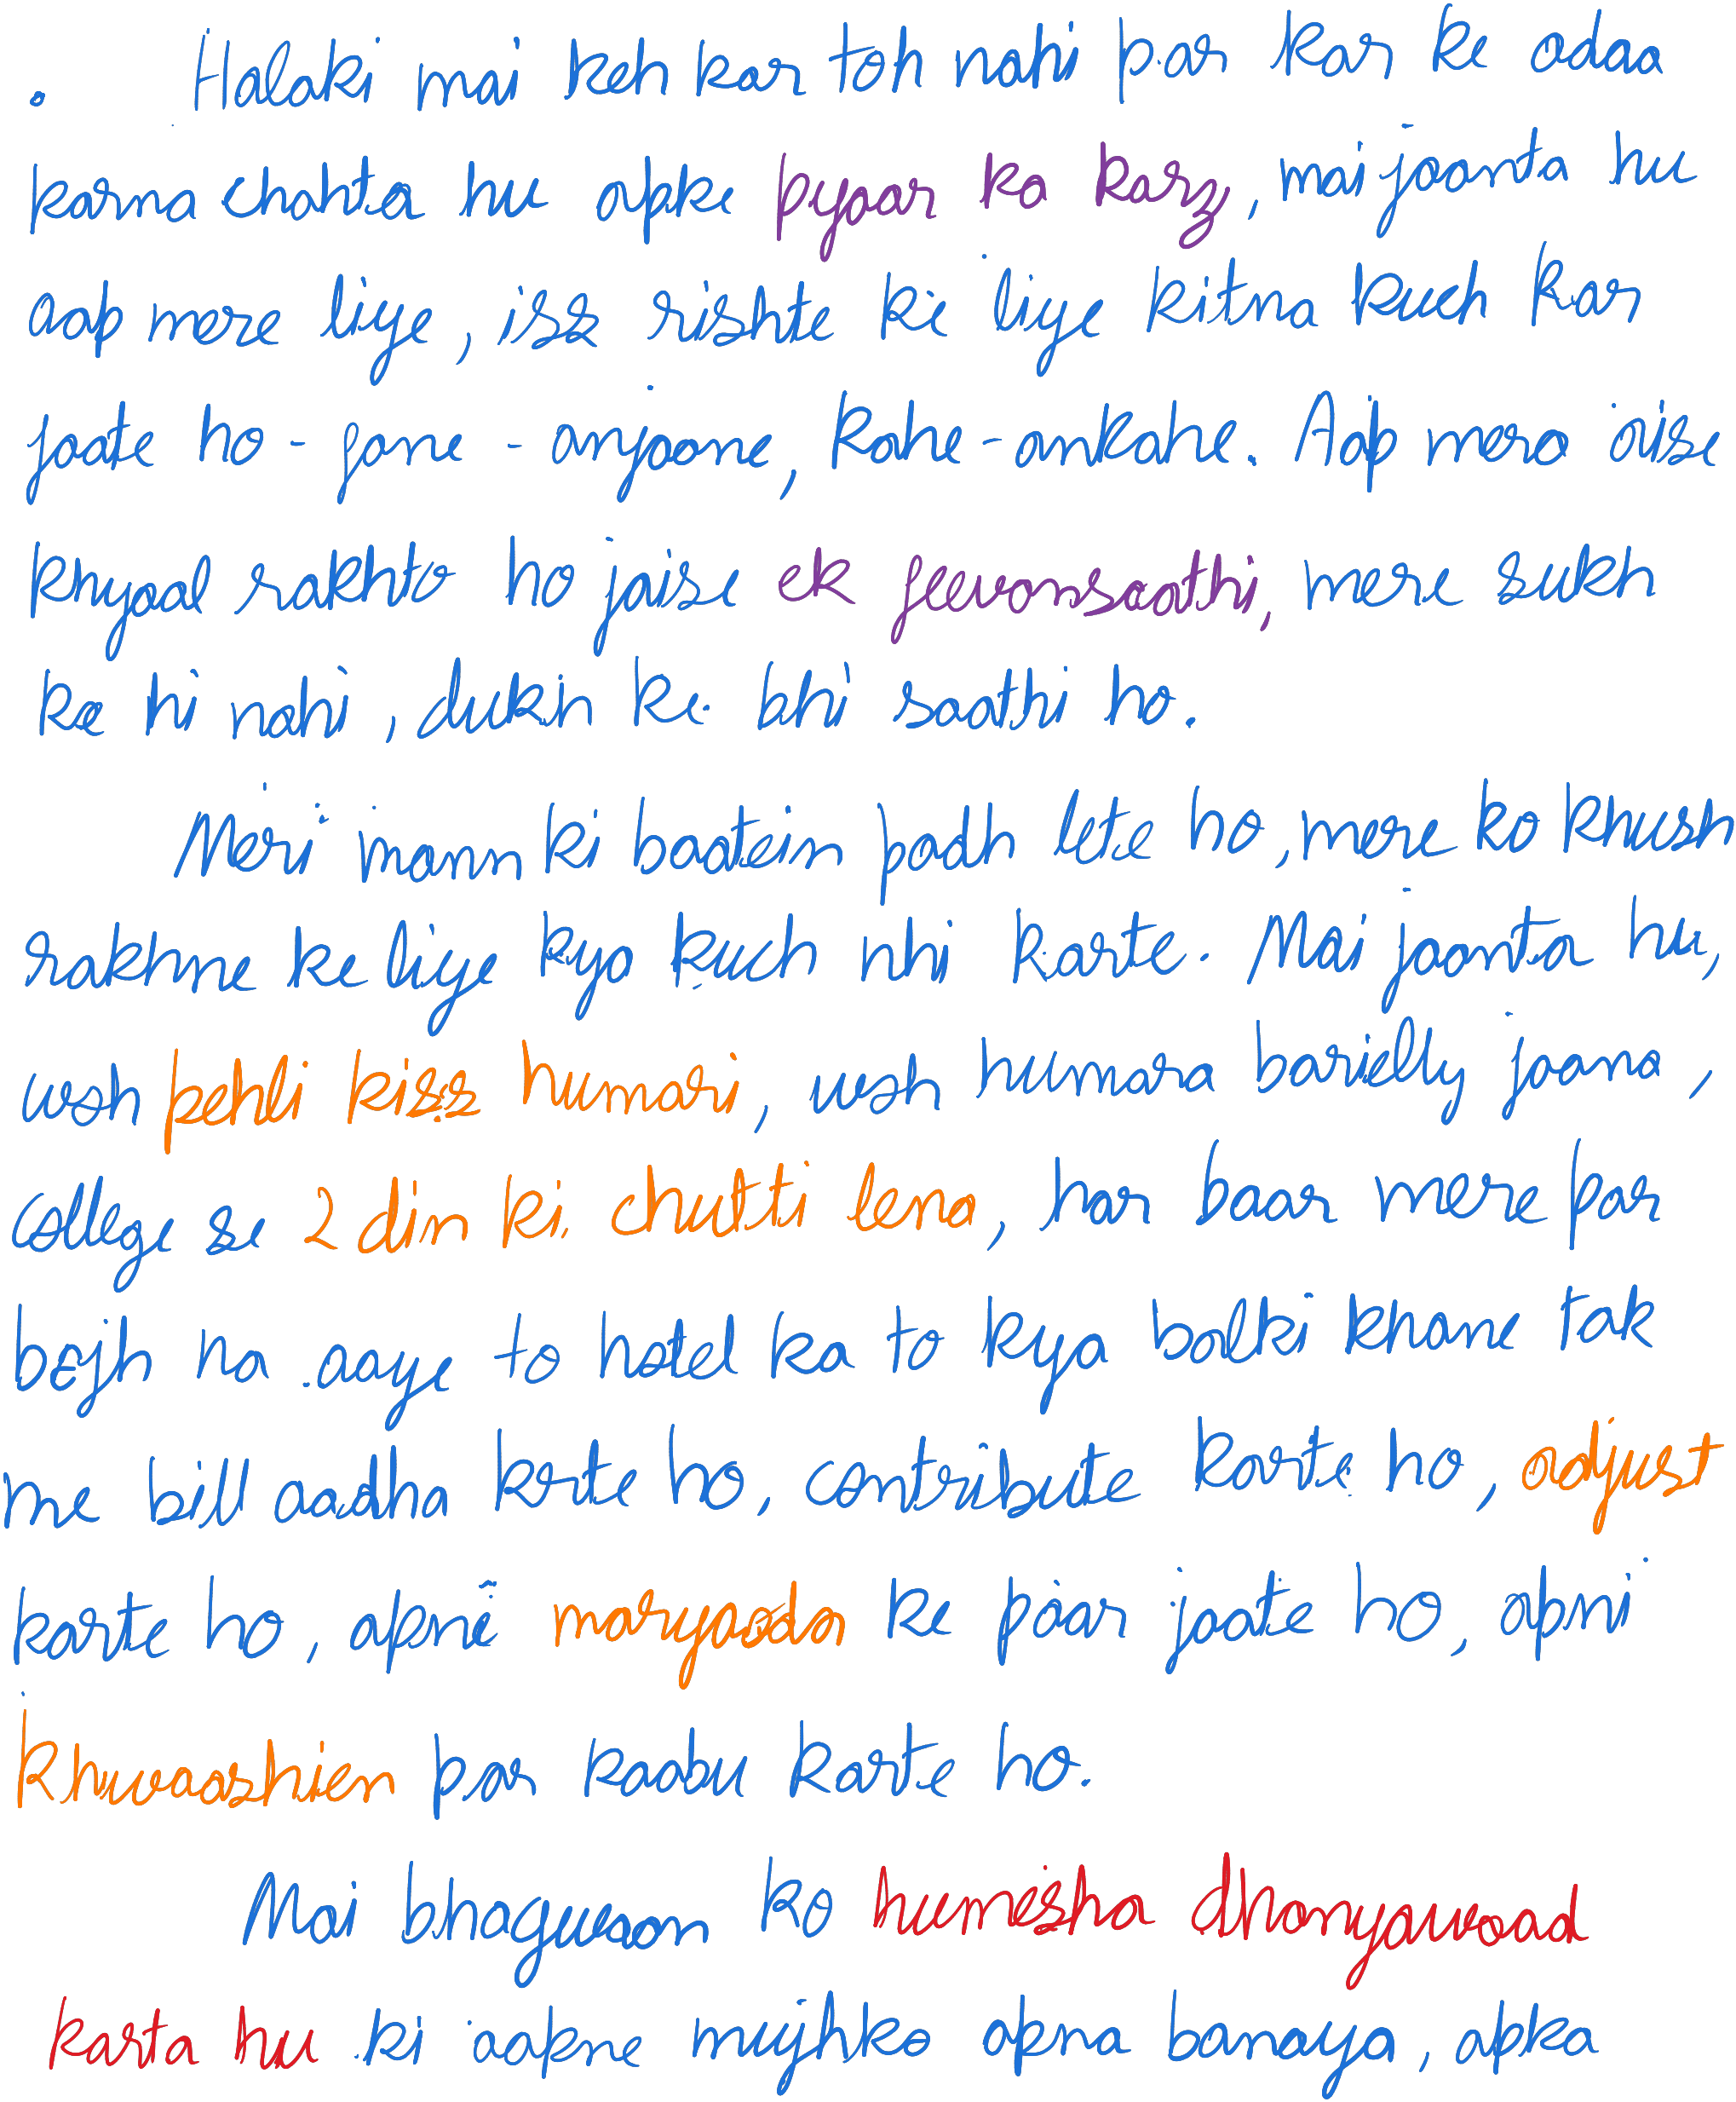 . Halaki mai keh kar toh nahi par kar ke adaa
karna chahta hu apke pyaar ka karz, mai jaanta hu
aap mere liye, iss rishte ke liye kitna kuch kar
jaate ho - jane - anjaane, kahe - ankahe. Aap mera aise
khyaal rakhte ho jaise ek jeevansaathi, mere sukh
ke hi nahi, dukh ke bhi saathi ho.
Meri mann ki baatein padh lete ho, mere ko khush
rakhne ke liye kya kuch nhi karte. Mai jaanta hu,
woh pehli kiss humari, woh humara barielly jaana,
college se 2 din ki chutti lena, har baar mere par
bojh na aaye to hotel ka to kya balki khane tak
me bill aadha krte ho, contribute karte ho, adjust
karte ho, apne maryaada ke paar jaate ho, apni
khwaashien par kaabu karte ho.
Mai bhagwaan ko humesha dhanyawaad
karta hu ki aapne mujhko apna banaya, apka